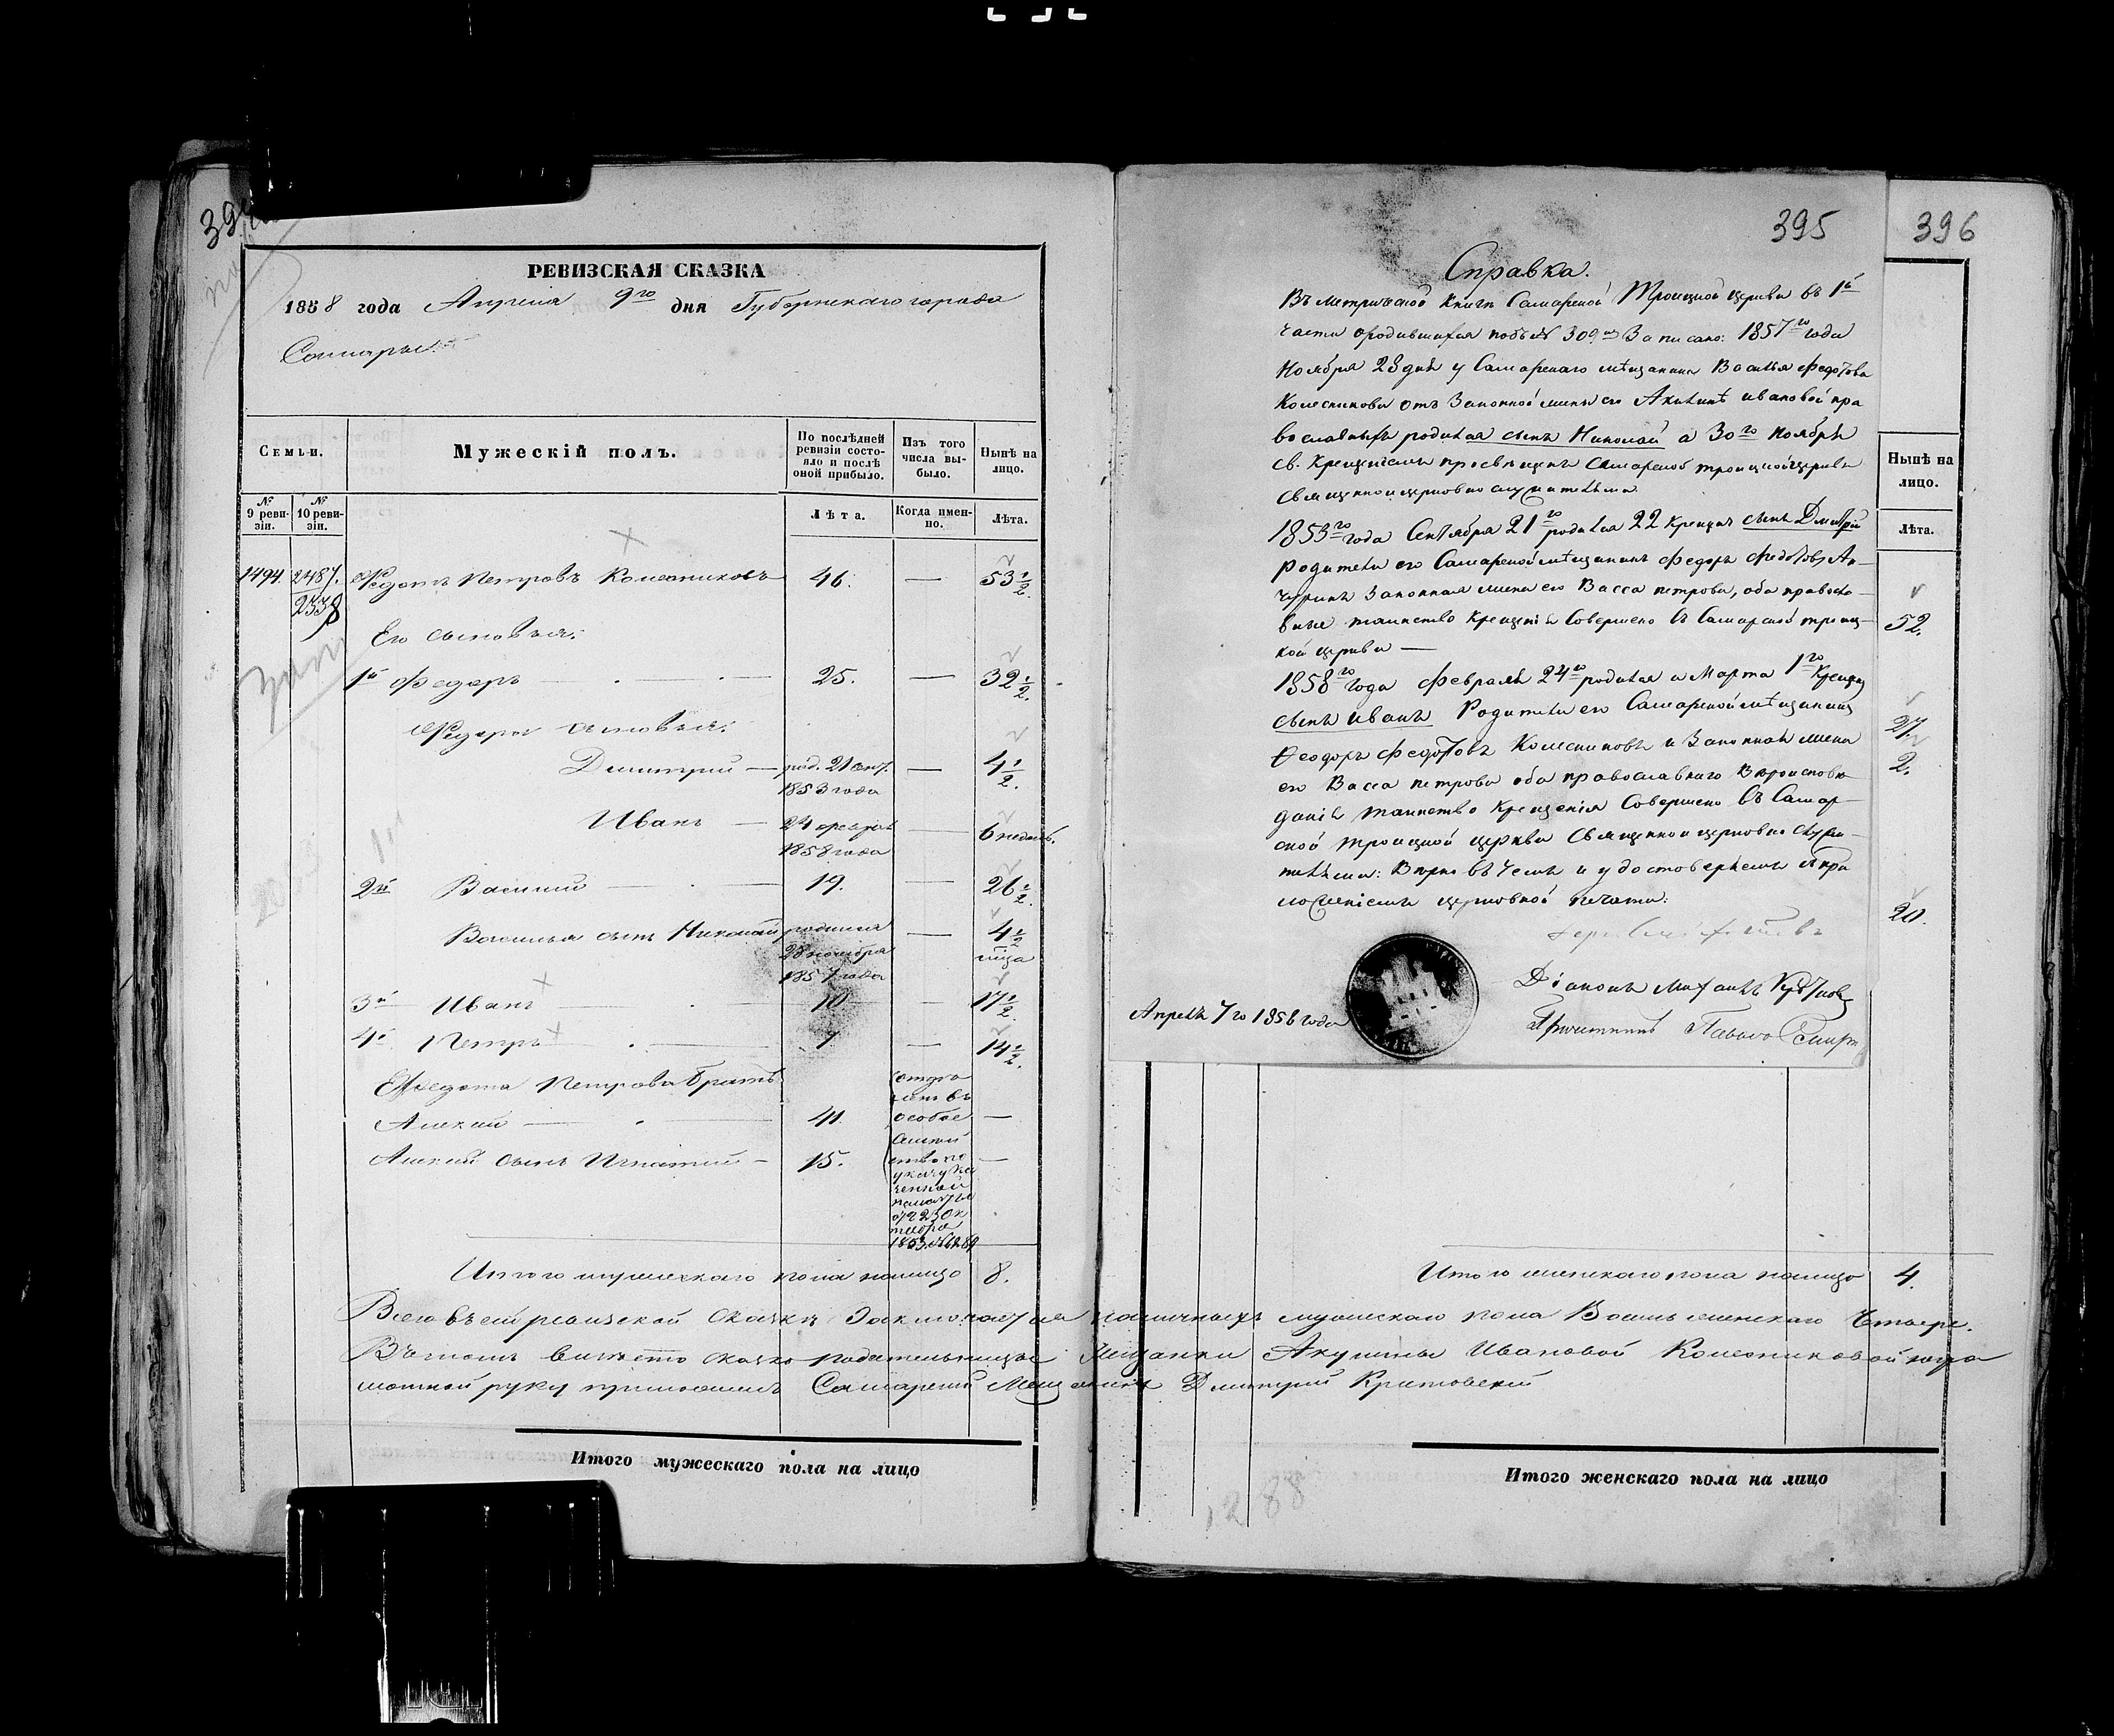 РЕВИЗСКАЯ СКАЗКА
1858 года Апреля 9го дня Губернскаго города
Самары.
Семьи.
Мужескій полъ.
По послѣдней ревизіи состояло и послѣ оной прибыло.
Изъ того числа выбыло.
Нынѣ на лицо.
№ 9 ревизіи.
№ 10 ревизіи.
Лѣта.
Когда именно.
Лѣта.
1494 2487. Федотъ Петровъ Колесниковъ 46. — 53 1/2.
2338
Его сыновья:
1й Федоръ — 25. — 32 1/2.
Федора сыновья:
Димитрий — род. 21 сент. — 4 1/2.
1853 года
Иванъ — 24 февраля — 6 недель.
1858 года
2й Василий — 19. — 26 1/2.
Василья сынъ Николай родился — 4 1/2
28 ноября мѣсяца
1857 года
3й Иванъ — 10 — 17 1/2.
4й Петръ — 7 — 14 1/2.
Федота Петрова братъ
Алексей — 41. особое —
Алексея сынъ Игнатий — 15. —
1853.
Итого мужескаго пола налицо 8.
Всего въ сей ревизской сказкѣ заключается наличныхъ мужескаго пола восмь женскаго четыре.
Въ чемъ вместо сказкоподательницы Мещанки Акулины Ивановой Колесниковой негра
мотной руку приложилъ Самарский Мещанинъ Дмитрий
Итого мужескаго пола на лицо
395
396
Справка.
Въ метрической книгѣ Самарской Троицкой церкви въ 1й
части о родившихся подъ № 309м Записано: 1857го года
Ноября 28 дня у Самарскаго мѣщанина Василья Федотова
Колесникова отъ Законной жены его Акилины Ивановой пра
вославныхъ родился сынъ Николай а 30го Ноября
св. крещениемъ просвѣщенъ Самарской троицкой церкви
Священно и церковно служителями.
1853го года Сентября 21го родился 22 Крещенъ сынъ Дмитрій
родители его Самарской мѣщанинъ Федоръ Федотовъ
Законная жена его Васса петрова, оба правосла-
вные таинство крещенія Совершено въ Самарской троиц-
кой церкви —
1858го года февраля 24го родился и Марта 1го Крещенъ
сынъ Иванъ Родители его Самарской мѣщанинъ
Ѳеодоръ Федотовъ Колесниковъ и Законная жена
его Васса петрова оба православнаго Вѣроиспове
данія таинство Крещенія Совершено въ Самар-
ской троицкой церкви Священно и церковно служи-
тельми: Вѣрно въ чемъ и удостоверяемъ съ при
ложеніемъ церковной печати:
Діаконъ Михаилъ
Апреля 7го 1858 года
Причетникъ Павелъ
Нынѣ на лицо.
Лѣта.
52.
27.
2.
20.
Итого женскаго пола налицо 4.
Итого женскаго пола на лицо
1288